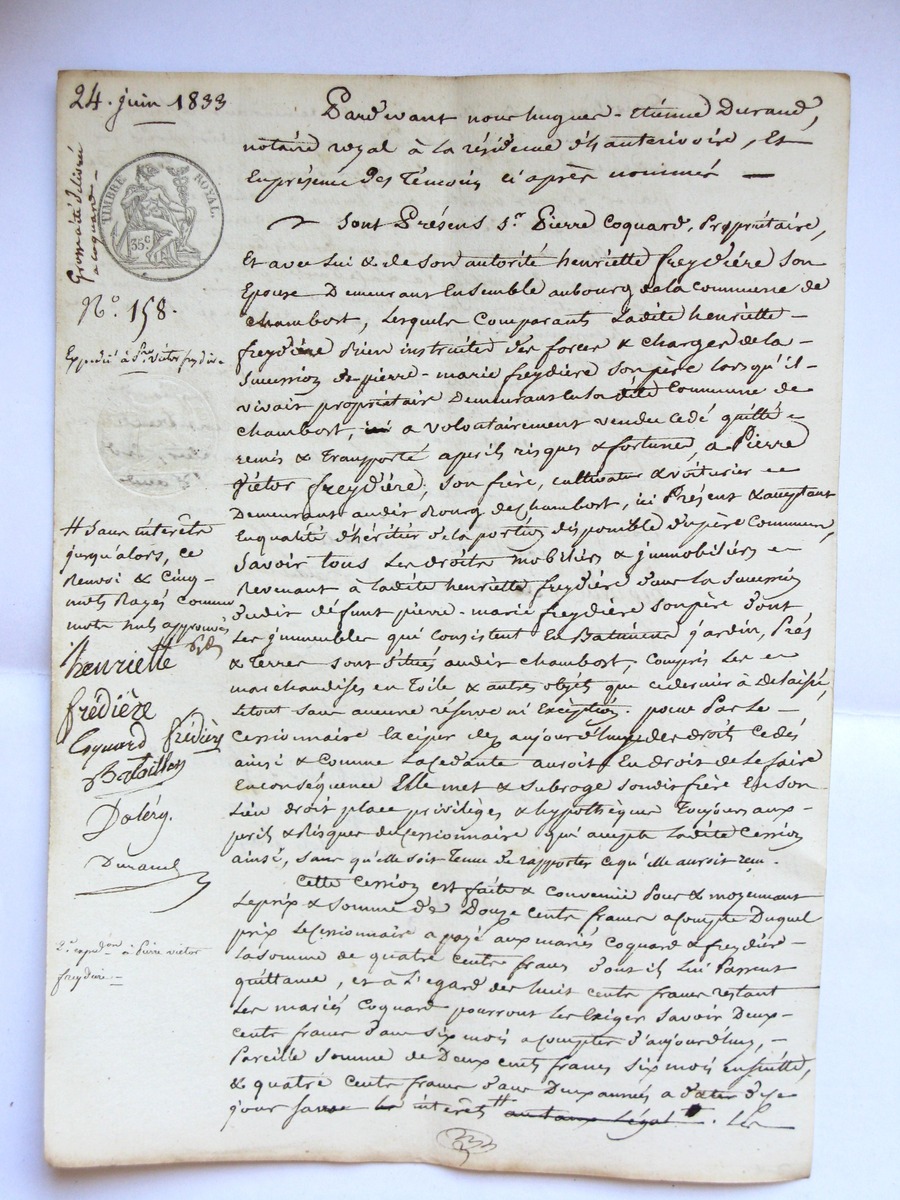 24. juin 1833
Grosse a été délivrée
a Coquard
TIMBRE ROYAL
35 c
N° 158.
Expédié à Pre victor freydière
Pardevant nous hugues-Etienne Durand,
notaire royal à la résidence d'hauterivoire, Et
En présence Des Témoins ci après nommés —
Sont Présens Sr. Pierre Coquard, Propriétaire,
Et avec Lui & de Son autorité henriette freydière Son
Epouse Demeurant Ensemble au bourg de la Commune de
Chambost, Lesquels Comparants Ladite henriette
freydière Bien instruite des forces & Charges de la
Succession de pierre-marie freydière Son père lorsqu'il
vivait propriétaire Demeurant en la dite Commune de
Chambost, a volontairement vendu cédé quitté
remis & Transporté a perils risques & fortune, a Pierre
Victor freydière, Son frère, cultivateur & voiturier
Demeurant audit Bourg de Chambost, ici Présent & acceptant
En qualité d'héritier de la portion disponible du père Commun,
Savoir tous Les droits mobiliers & immobiliers
Revenant à ladite henriette freydière dans La Succession
dudit défunt pierre-marie freydière Son père dont
Les immeubles qui Consistent En Batimens jardin, Prés
& Terres Sont situés audit Chambost, Compris Les
marchandises en Toile & autres objets que ce dernier à Delaissé,
Le tout Sans aucune réserve ni Exception. pour Par Le
Cessionnaire disposer dez aujourd'hui des droits Cédés
ainsi & Comme La Cedante auroit En droit de Le faire
En conséquence Elle met & Subroge Son dit frère En Son
Lieu droit place privilèges & hypothèque Toujours aux
perils & Risques du Cessionnaire qui accepte Ladite Cession
ainsi, Sans qu'elle Soit Tenue de rapporter Ce qu'elle auroit reçu.
Cette Cession est faite & Convenue Pour & moyennant
Le prix & Somme De Douze Cents francs a Compte Duquel
prix Le Cessionnaire a payé aux mariés Coquard & freydière
La Somme de quatre Cents francs dont ils Lui Passent
quittance, et à L'égard des huit Cents francs restant
Les mariés Coquard pourront Les Exiger Savoir Deux
Cents francs dans Six mois a Compter d'aujourd'hui,
Pareille Somme de Deux cents francs Six mois ensuitte,
& quatre Cents francs dans Deux années a dater de ce
jour les intérêts # au taux Légal #.
# Sans intérêts
jusqu'alors, ce
Renvoi & Cinq
mots Rayés Comme
mots nuls approuvés
henriette
frédière
Coquard frédière
Batailloy
Doléry.
Durand
2e. expédon à Pierre victor
freydière